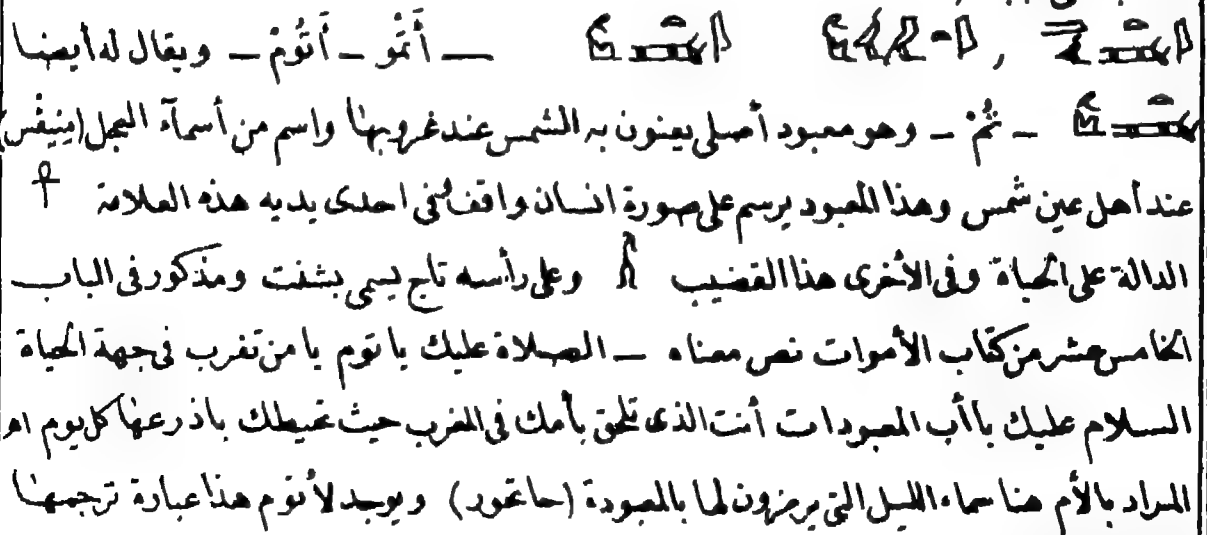 — أَتْمُو — أَتُومْ — ويقال له أيضا
— تُمْ — وهو معبود أصلى يعنون به الشمس عند غروبها واسم من أسمآء العجل (مِنِيفِس)
عند أهل عين شمس وهذا المعبود يرسم على صورة انسان واقف فى احدى يديه هذه العلامة
الدالة على الحياة وفى الأخرى هذا القضيب وعلى رأسه تاج يسمى بشنت ومذكور فى الباب
الخامس عشر من كتاب الأموات نص معناه — الصلاة عليك يا توم يا من تغرب فى جهة الحياة
السلام عليك يا أب المعبودات أنت الذى تلحق بأمك فى المغرب حيث تحيطك باذرعها كل يوم اه
المراد بالأم هنا سماء الليل التى يرمزون لها بالمعبودة (حاتحور) ويوجد لأتوم هذا عبارة ترجمتها